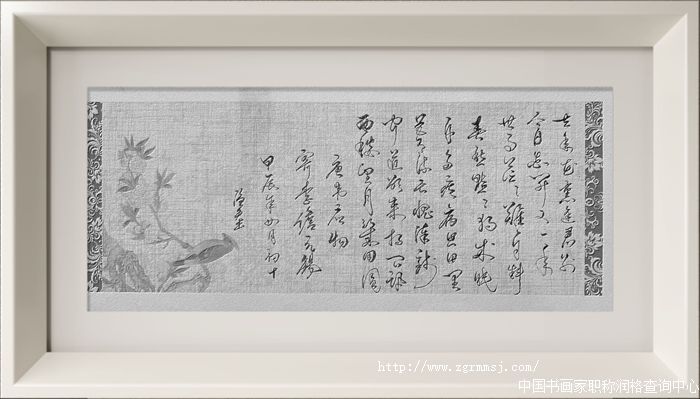 去年花裏逢君别
今日花開又一年
世事茫々難自料
春愁黯々獨成眠
身多疾病思田里
邑有流亡愧俸錢
聞道欲來相問訊
西樓望月幾回圓
唐韋應物
寄李儋元錫
甲辰年月初十
http://www.zgrmmsj.com/
中国书画家职称润格查询中心